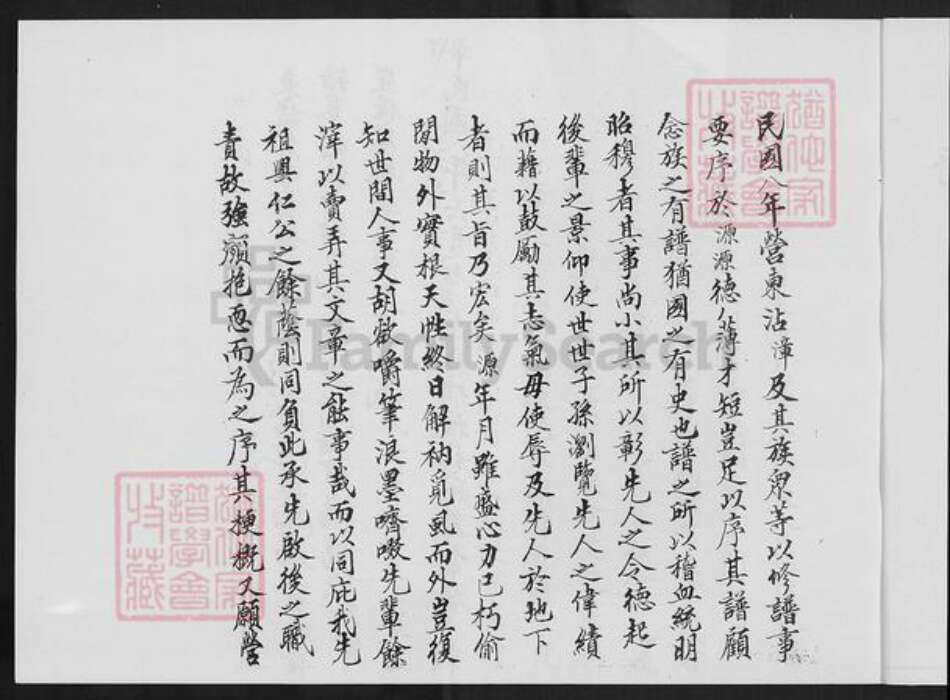 民國八年營東沾漳及其族眾等以修譜事
要序於源源德薄才短豈足以序其譜顧
念族之有譜猶國之有史也譜之所以稽血統明
昭穆者其事尚小其所以彰先人之令德起
後輩之景仰使世世子孫瀏覽先人之偉績
而藉以鼓勵其志氣毋使辱及先人於地下
者則其旨乃宏矣源年月雖盛心力已朽偷
閒物外實根天性終日解衲覓虱而外豈復
知世間人事又胡欲嚼筆浪墨嚌啜先輩餘
滓以賣弄其文章之能事哉而以同庇我先
祖興仁公之餘蔭則同負此承先啟後之職
責故強顏抱恧而為之序其梗概又願營
譜學會
收藏
譜學會
收藏
FamilySearch